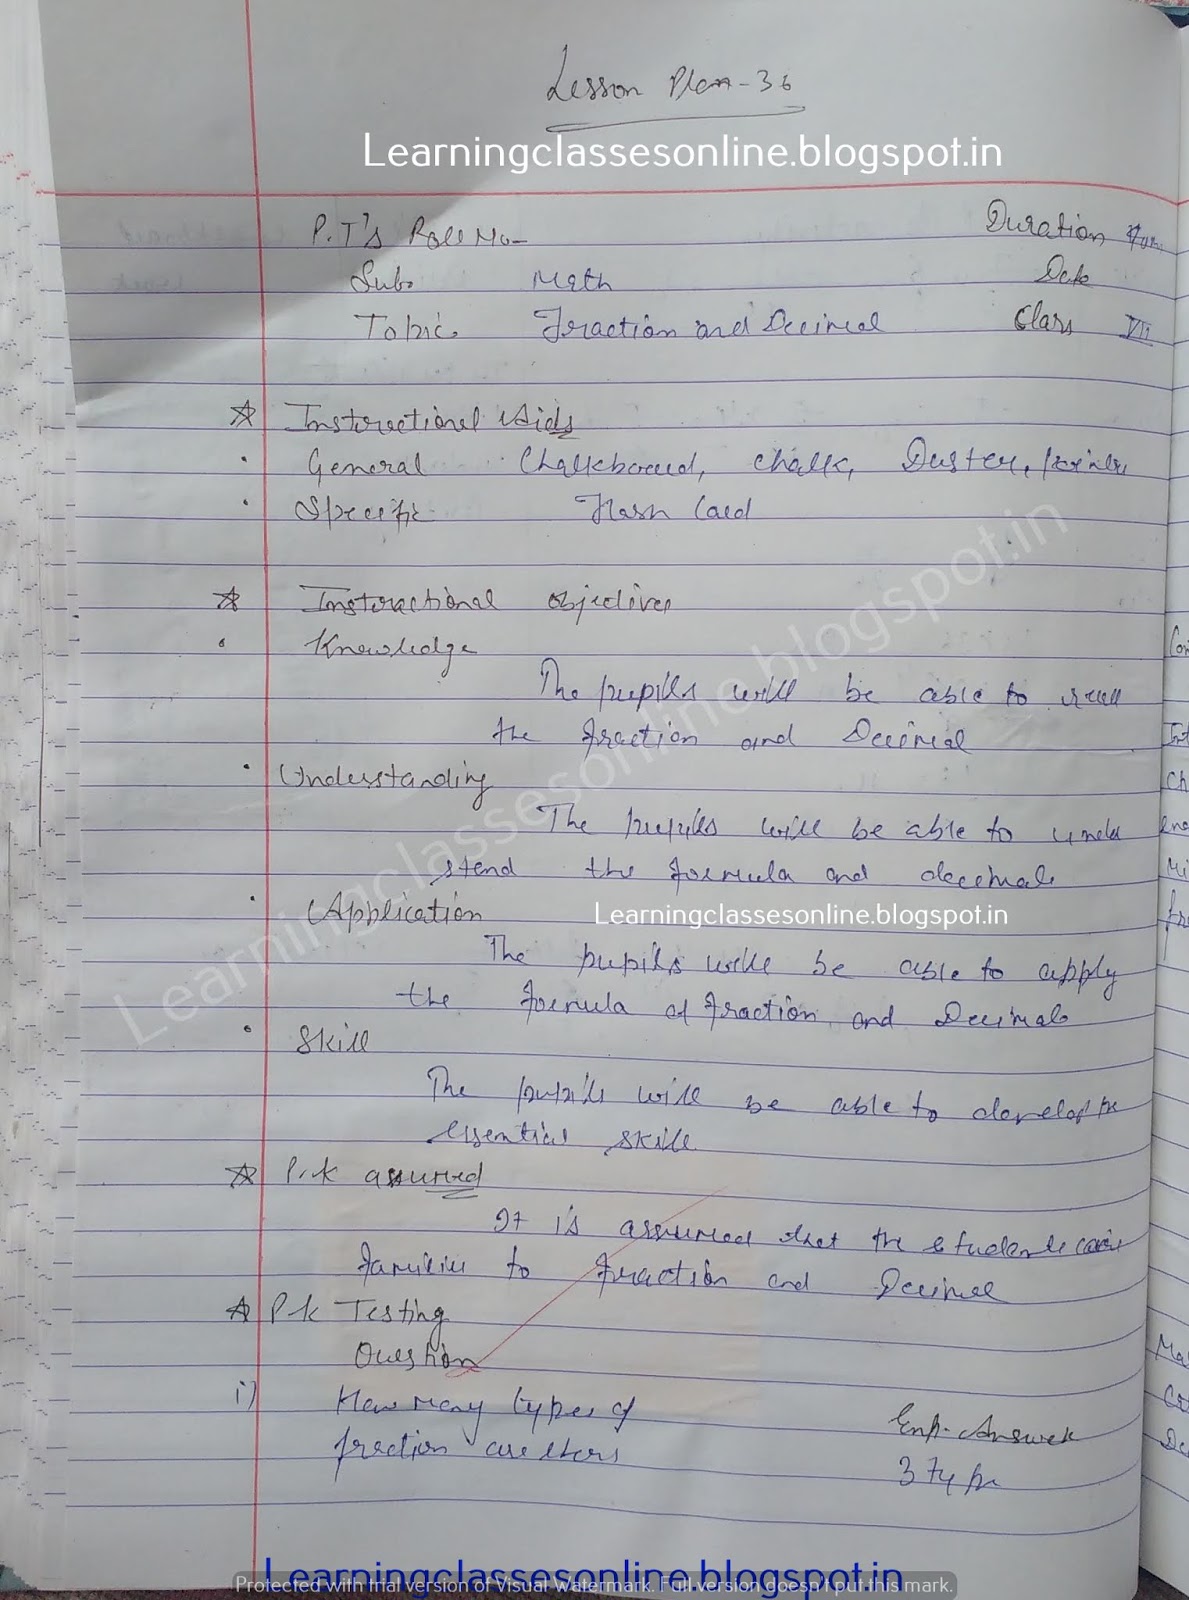 Lesson Plan-36
Learningclassesonline.blogspot.in
P.T's Roll No- Duration
Sub. Math Date
Topic Fraction and Decimal Class VII
Instructional Aids
General Chalkboard, chalk, Duster,
Specific Flash Card
Instructional objectives
Knowledge
The pupils will be able to recall
the fraction and Decimal
Understanding
The pupils will be able to under
stand the formula and decimals
Application
Learningclassesonline.blogspot.in
The pupils will be able to apply
the formula of fraction and Decimals
Skill
The pupils will be able to develop the
essential skill
P.k assumed
It is assumed that the students are
familier to fraction and Decimal
P.k Testing
Question
i) How many types of Exp. Answer
fraction are there 3 type
Learningclassesonline.blogspot.in
Learningclassesonline.blogspot.in
Protected with trial version of Visual Watermark. Full version doesn't put this mark.